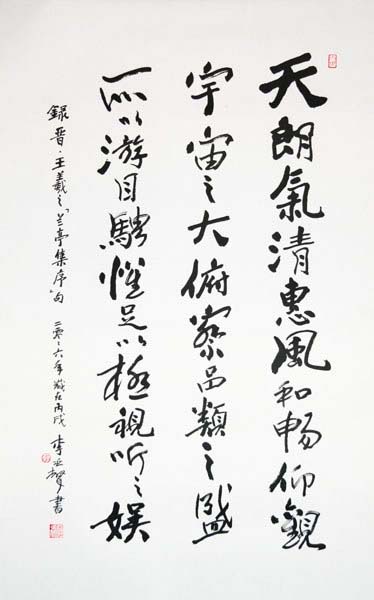 天朗氣清惠風和暢仰觀
宇宙之大俯察品類之盛
所以游目騁懷足以極視听之娱
録晋·王羲之「兰亭集序」句 二零零六年歲在丙戌 李賢書